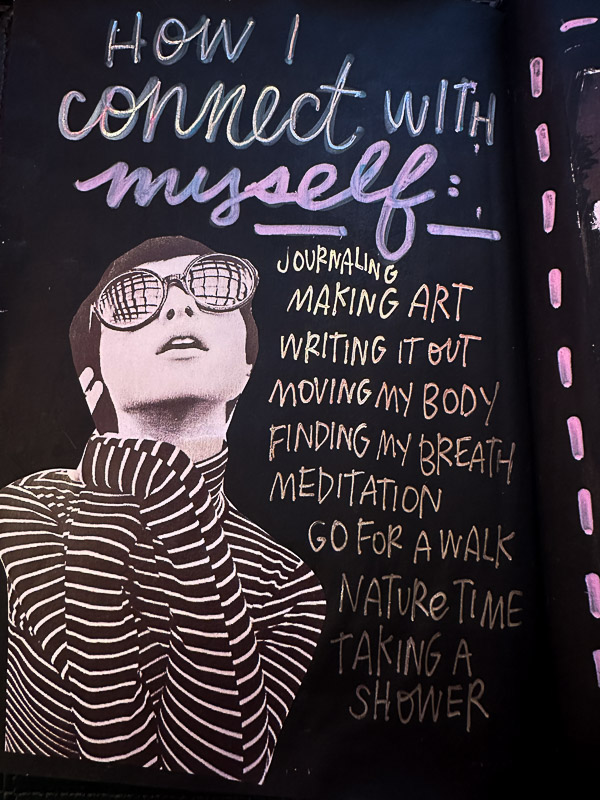 HOW I
connect WITH
myself:
JOURNALING
MAKING ART
WRITING IT OUT
MOVING MY BODY
FINDING MY BREATH
MEDITATION
GO FOR A WALK
NATURe TIME
TAKING A
SHOWER